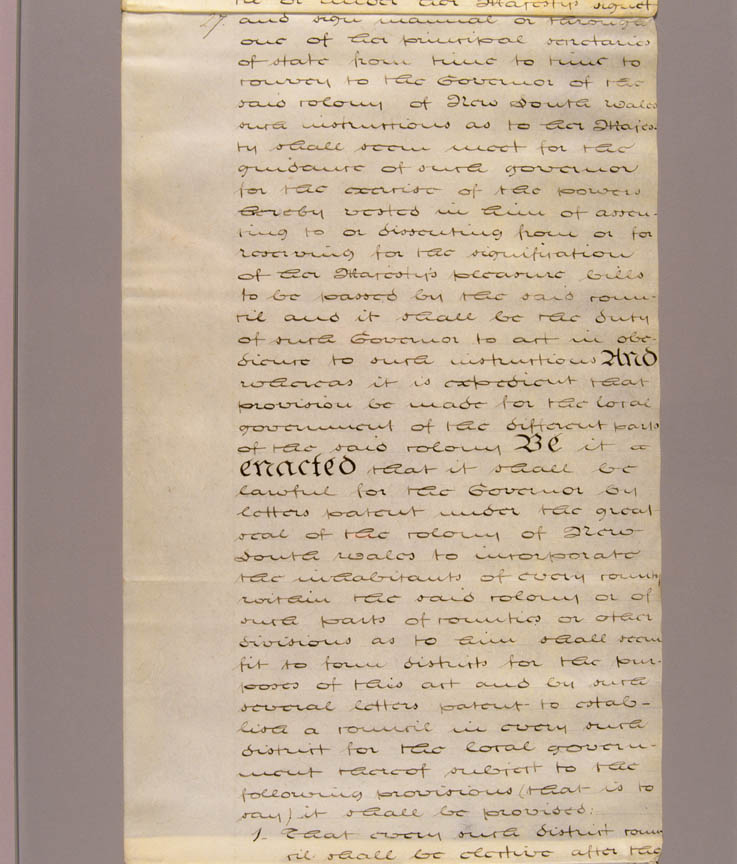 cil or under Her Majesty's signet
27. and sign manual or through
one of her principal secretaries
of state from time to time to
convey to the Governor of the
said colony of New South Wales
such instructions as to Her Majes-
ty shall seem meet for the
guidance of such governor
for the exercise of the powers
hereby vested in him of assen-
ting to or dissenting from or for
reserving for the signification
of Her Majesty's pleasure bills
to be passed by the said coun-
cil and it shall be the duty
of such Governor to act in obe-
dience to such instructions And
whereas it is expedient that
provision be made for the local
government of the different parts
of the said colony Be it
enacted that it shall be
lawful for the Governor by
letters patent under the great
seal of the colony of New
South Wales to incorporate
the inhabitants of every county
within the said colony or of
such parts of counties or other
divisions as to him shall seem
fit to form districts for the pur-
poses of this act and by such
several letters patent to estab-
lish a council in every such
district for the local govern-
ment thereof subject to the
following provisions (that is to
say) it shall be provided:
1. That every such district coun
cil shall be elective after the